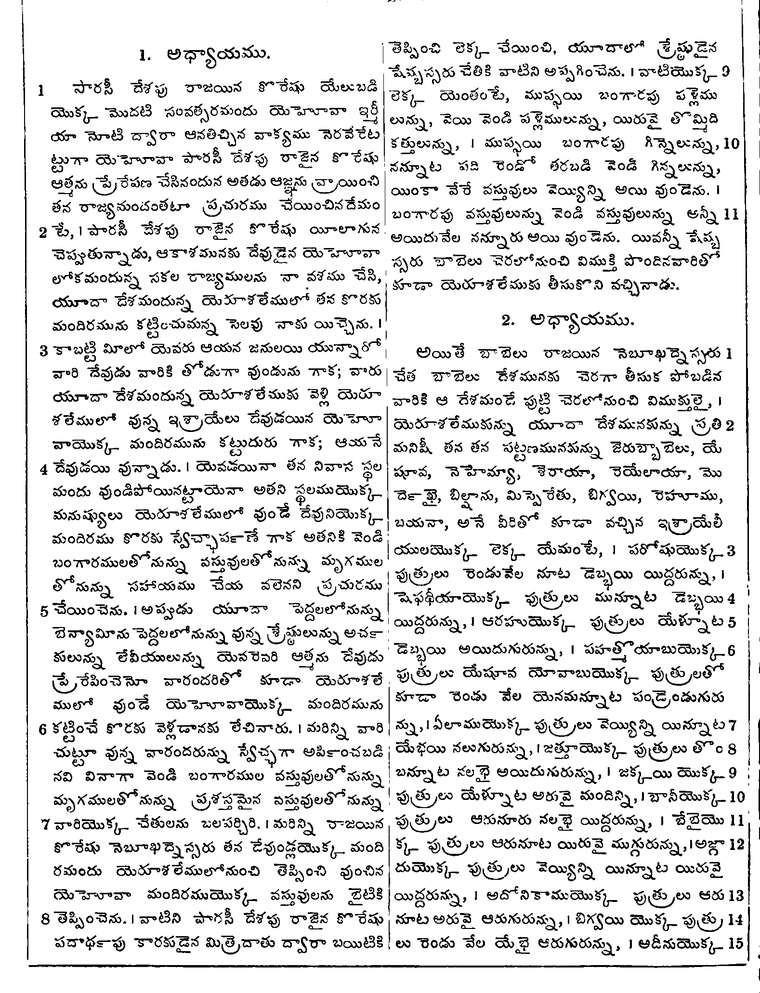 1. అధ్యాయము.
1 పారసీ దేశపు రాజయిన కొరేషు యేలుబడి
యొక్క మొదటి సంవత్సరమందు యెహోవా ఇర్మీ
యా నోటి ద్వారా ఆనతిచ్చిన వాక్యము నెరవేరేట
ట్టుగా యెహోవా పారసీ దేశపు రాజైన కొరేషు
ఆత్మను ప్రేరేపణ చేసినందున అతడు ఆజ్ఞను వ్రాయించి
తన రాజ్యమందంతటా ప్రచురము చేయించినదేమం
2 టే, । పారసీ దేశపు రాజైన కొరేషు యీలాగున
చెప్పుతున్నాడు, ఆకాశమునకు దేవుడైన యెహోవా
లోకమందున్న సకల రాజ్యములను నా వశము చేసి,
యూదా దేశమందున్న యెరూశలేములో తన కొరకు
మందిరమును కట్టించుమన్న సెలవు నాకు యిచ్చెను. ।
3 కాబట్టి మీలో యెవరు ఆయన జనులయి యున్నారో
వారి దేవుడు వారికి తోడుగా వుండును గాక; వారు
యూదా దేశమందున్న యెరూశలేముకు వెళ్లి యెరూ
శలేములో వున్న ఇశ్రాయేలు దేవుడయిన యెహో
వాయొక్క మందిరమును కట్టుదురు గాక; ఆయనే
4 దేవుడయి వున్నాడు. । యెవడయినా తన నివాస స్థల
మందు వుండిపోయినట్టాయెనా అతని స్థలముయొక్క
మనుష్యులు యెరూశలేములో వుండే దేవునియొక్క
మందిరము కొరకు స్వేచ్ఛార్పణే గాక అతనికి వెండి
బంగారములతోనున్ను వస్తువులతోనున్ను మృగముల
తోనున్ను సహాయము చేయ వలెనని ప్రచురము
5 చేయించెను. । అప్పుడు యూదా పెద్దలలోనున్ను
బెన్యామీను పెద్దలలోనున్ను వున్న శ్రేష్ఠులున్ను అర్చ
కులున్ను లేవీయులున్ను యెవరెవరి ఆత్మను దేవుడు
ప్రేరేపించెనో వారందరితో కూడా యెరూశలే
ములో వుండే యెహోవాయొక్క మందిరమును
6 కట్టించే కొరకు వెళ్లడానకు లేచినారు. । మరిన్ని వారి
చుట్టూ వున్న వారందరున్ను స్వేచ్ఛగా అర్పించబడి
నవి వినాగా వెండి బంగారముల వస్తువులతోనున్ను
మృగములతోనున్ను ప్రశస్తమైన వస్తువులతోనున్ను
7 వారియొక్క చేతులను బలపర్చిరి. । మరిన్ని రాజయిన
కొరేషు నెబూఖద్నెస్సరు తన దేవుండ్లయొక్క మంది
రమందు యెరూశలేములోనుంచి తెప్పించి వుంచిన
యెహోవా మందిరముయొక్క వస్తువులను బైటికి
8 తెప్పించెను. । వాటిని పారసీ దేశపు రాజైన కొరేషు
పదార్థపు కారకుడైన మిత్రెదాతు ద్వారా బయిటికి
తెప్పించి లెక్క చేయించి, యూదాలో శ్రేష్ఠుడైన
షేష్బస్సరు చేతికి వాటిని అప్పగించెను. । వాటియొక్క 9
లెక్క యెంతంటే, ముప్పయి బంగారపు పళ్లెము
లున్ను, వెయి వెండి పళ్లెములున్ను, యిరువై తొమ్మిది
కత్తులున్ను, । ముప్పయి బంగారపు గిన్నెలున్ను, 10
నన్నూట పది రెండో తరబడి వెండి గిన్నలున్ను,
యింకా వేరే వస్తువులు వెయ్యిన్ని అయి వుండెను. ।
బంగారపు వస్తువులున్ను వెండి వస్తువులున్ను అన్నీ 11
అయిదువేల నన్నూరు అయి వుండెను. యివన్నీ షేష్బ
స్సరు బాబేలు చెరలోనుంచి విముక్తి పొందినవారితో
కూడా యెరూశలేముకు తీసుకొని వచ్చినాడు.
2. అధ్యాయము.
అయితే బాబేలు రాజయిన నెబూఖద్నెస్సరు 1
చేత బాబేలు దేశమునకు చెరగా తీసుక పోబడిన
వారికి ఆ దేశమందే పుట్టి చెరలోనుంచి విముక్తులై, ।
యెరూశలేముకున్ను యూదా దేశమునకున్ను ప్రతి 2
మనిషీ తన తన పట్టణమునకున్ను జెరుబ్బాబేలు, యే
షూవ, నెహేమ్యా, శెరాయా, రెయేలాయా, మొ
ర్దెఖై, బిల్షాను, మిస్పెరేతు, బిగ్వయి, రెహూము,
బయనా, అనే వీరితో కూడా వచ్చిన ఇశ్రాయేలీ
యులయొక్క లెక్క యేమంటే, । పరోషుయొక్క 3
పుత్రులు రెండువేల నూట డెబ్భయి యిద్దరున్ను, ।
షెఫథీయాయొక్క పుత్రులు మున్నూట డెబ్భయి 4
యిద్దరున్ను, । ఆరహుయొక్క పుత్రులు యేళ్నూట 5
డెబ్భయి అయిదుగురున్ను, । పహత్మోయాబుయొక్క 6
పుత్రులు యేషూవ యోవాబుయొక్క పుత్రులతో
కూడా రెండు వేల యెనమన్నూట పండ్రెండుగురు
న్ను, । ఏలాముయొక్క పుత్రులు వెయ్యిన్ని యిన్నూట 7
యేభయి నలుగురున్ను, । జత్తూయొక్క పుత్రులు తొం 8
బన్నూట నలభై అయిదుగురున్ను, । జక్కయి యొక్క 9
పుత్రులు యేళ్నూట అరువై మందిన్ని, । బానీయొక్క 10
పుత్రులు ఆరునూరు నలభై యిద్దరున్ను, । బేబైయొ 11
క్క పుత్రులు ఆరునూట యిరువై ముగ్గురున్ను, । అజ్గా 12
దుయొక్క పుత్రులు వెయ్యిన్ని యిన్నూట యిరువై
యిద్దరున్ను, । అదోనికాముయొక్క పుత్రులు ఆరు 13
నూట అరువై ఆరుగురున్ను, । బిగ్వయి యొక్క పుత్రు 14
లు రెండు వేల యేభై ఆరుగురున్ను, । ఆదీనుయొక్క 15